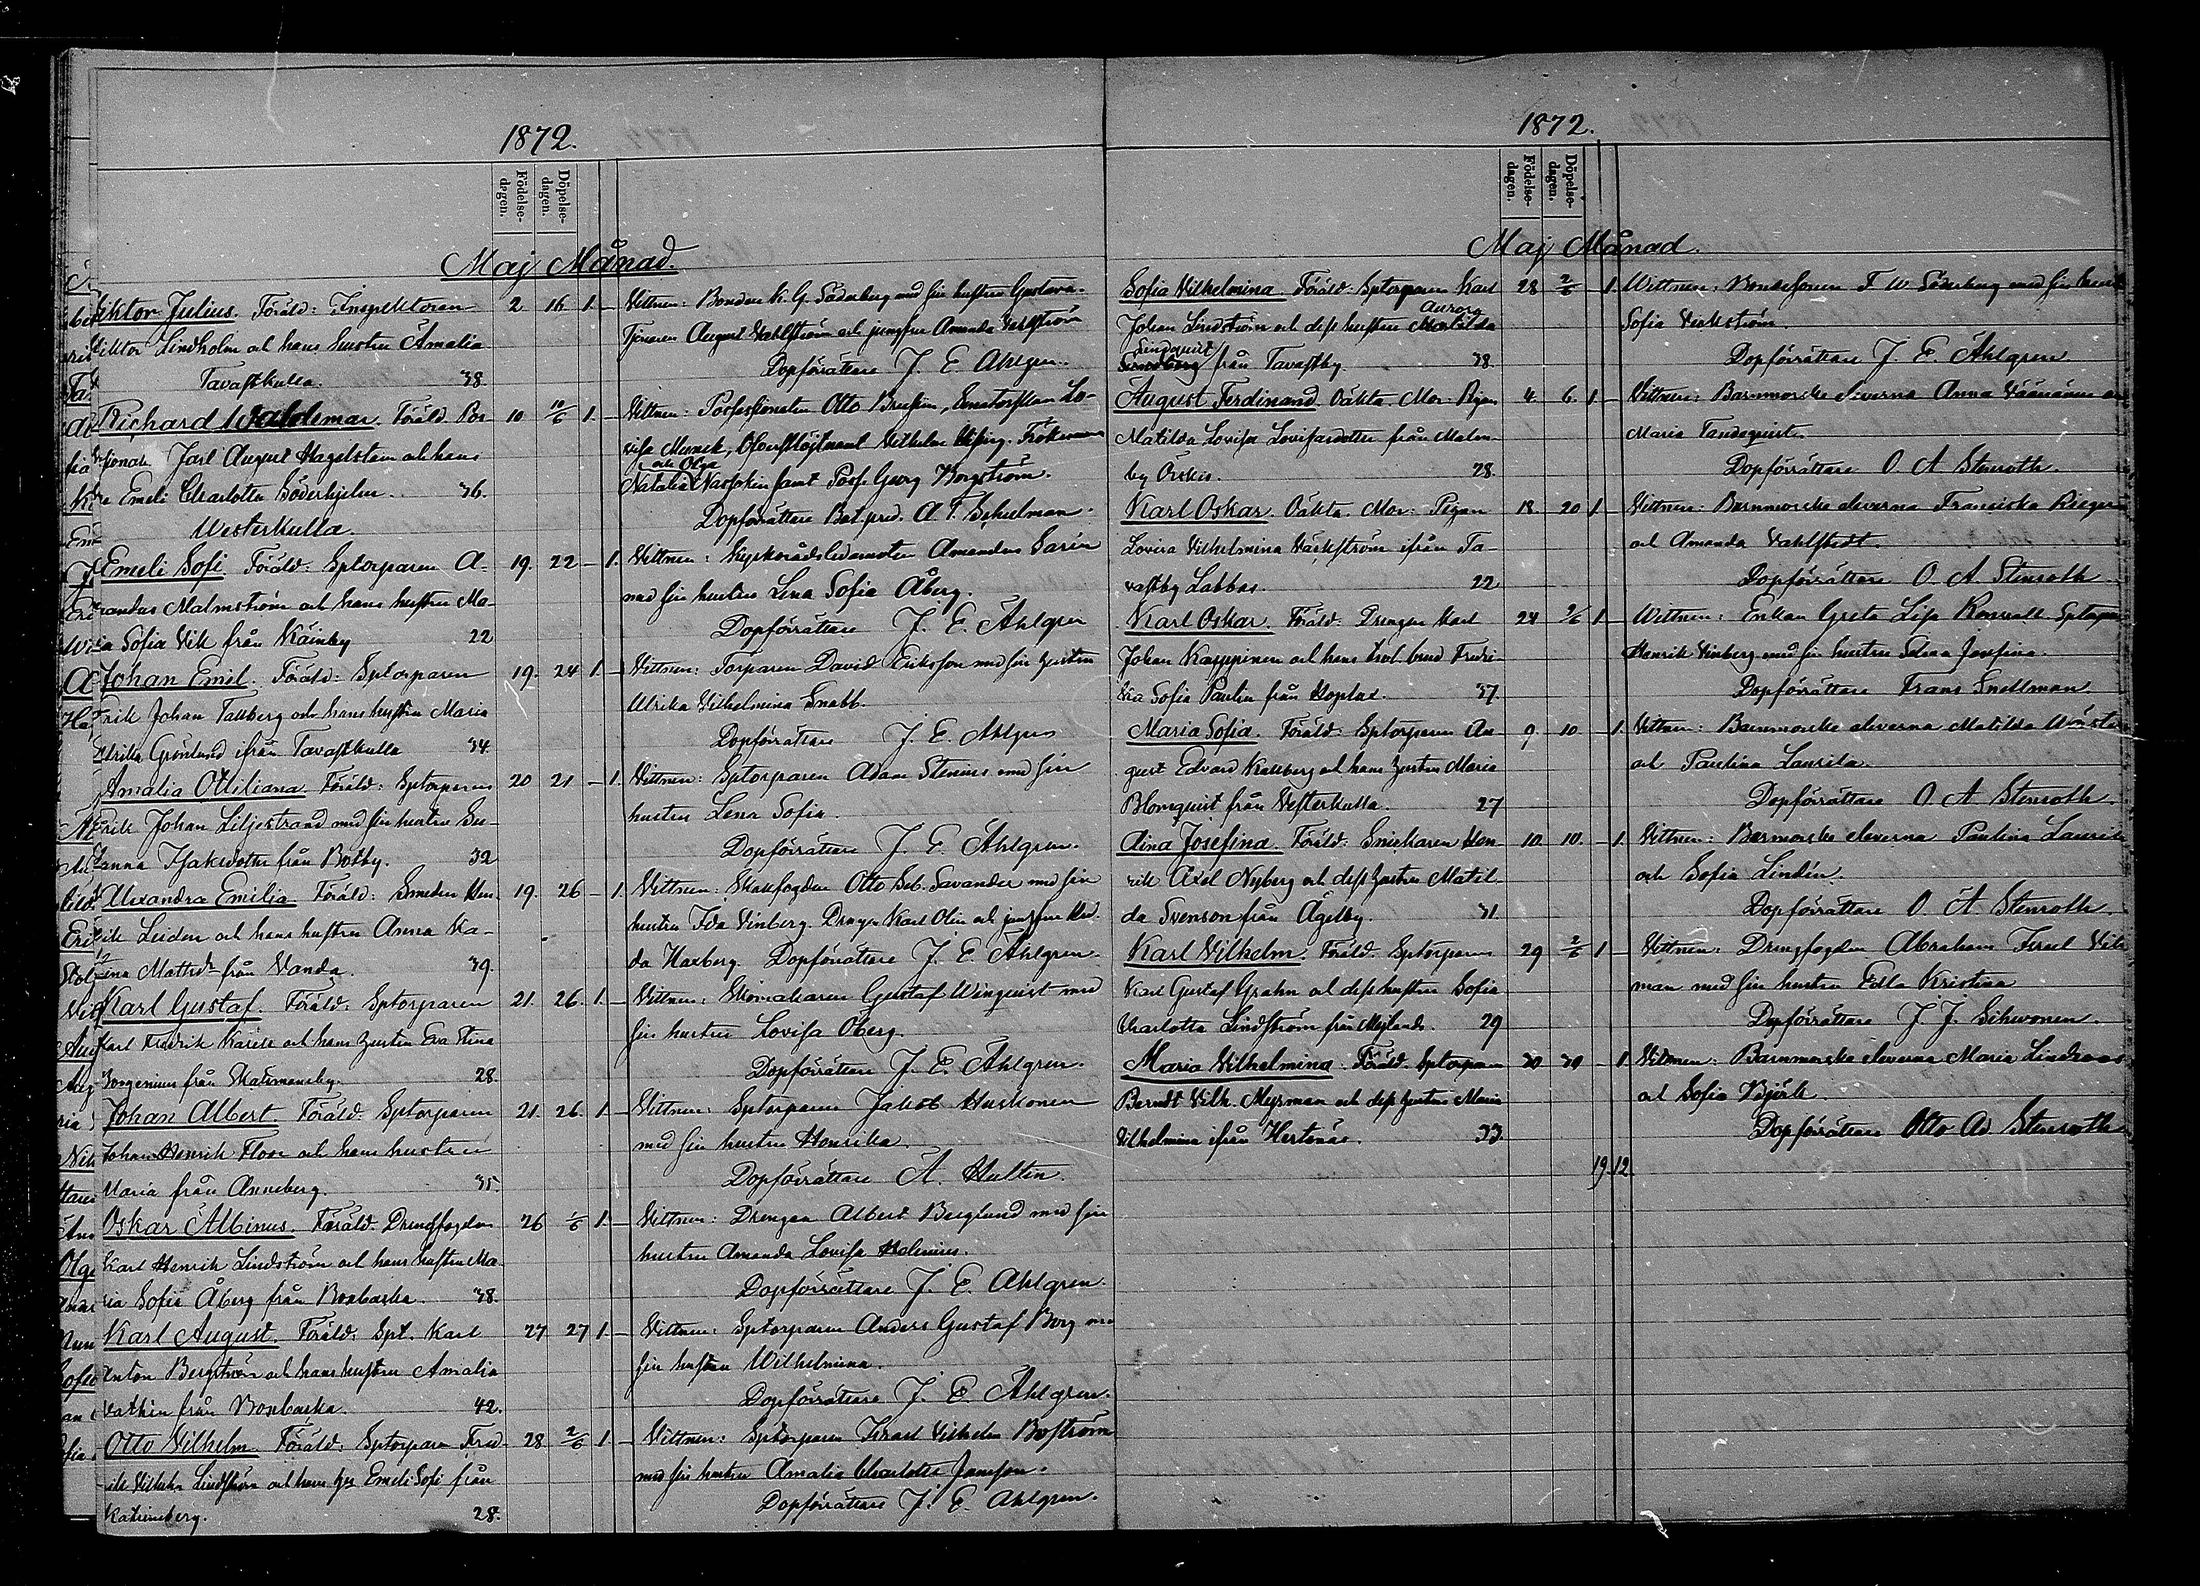 1872.
Födelse-
dagen.
Döpelse-
dagen.
Maj Månad.
Viktor Julius. Föräld: Inspektoren 2 16 1 —
Viktor Lindholm och hans hustru Amalia
Tavastkulla. 38.
Vittnen: Bonden K. G. Söderberg med sin hustru Gustava.
Tjenaren August Vahlström och jungfru Amanda
Dopförrättare J. E. Ahlgren.
Richard Waldemar. Föräld. Pos 10 10/6 1. —
Jarl August Hagelstam och hans
Emeli Charlotta Söderhjelm. 36.
Westerkulla.
Vittnen: Possessionaten Otto Senatorskan Lo-
visa Munck, Öfverstlöjtnant Vilhelm Fröknarna
och Olga
Natalia Nassokin samt Poss. Georg Borgström.
Dopförrättare Bat.pred. A. T. Schulman.
Emeli Sofi. Föräld: Sptorparen A- 19. 22 — 1.
mandus Malmström och hans hustru Ma-
ria Sofia Vik från Käinby 22
Vittnen: Kyrkorådsledamoten Amandus Sarin
med sin hustru Lina Sofia Åberg.
Dopförrättare J. E. Åhlgren
Johan Emil. Föräld: Sptorparen 19. 24 1. —
Erik Johan Tallberg och hans hustru Maria
Ulrika Grönlund ifrån Tavastkulla 34.
Vittnen: Torparen David Eriksson med sin hustru
Ulrika Vilhelmina Snabb.
Dopförrättare J. E. Ahlgren
Amalia Ottiliana. Föräld: Sptorparen 20 21 — 1.
Erik Johan Liljestrand med sin hustru Su-
sanna Isaksdotter från Botby. 32
Vittnen: Sptorparen Adam Stenius med sin
hustru Lena Sofia.
Dopförrättare J. E. Åhlgren.
Alexandra Emilia. Föräld: Smeden Hen- 19. 26 — 1.
rik Linden och hans hustru Anna Ka-
Mattsdr från Vanda. 39.
Vittnen: Skallfogden Otto Seb. Savander med sin
hustru Ida Vinberg. Drengen Karl Olin och jungfrun Hul-
da Haxberg. Dopförrättare J. E. Åhlgren.
Karl Gustaf. Föräld: Sptorparen 21. 26. 1. —
Karl Fredrik och hans hustru Eva Stina
från Skattmansby. 28.
Vittnen: Skomakaren Gustaf Winquist med
sin hustru Lovisa Öberg.
Dopförrättare J. E. Åhlgren.
Johan Albert. Föräld. Sptorparen 21. 26. 1. —
Johan Henrik Floor och hans hustru
Maria från Anneberg. 35.
Vittnen: Sptorparen Jakob Huskonen
med sin hustru Henrika
Dopförrättare A. Hultin.
Oskar Albinus. Föräld. Drengfogden 26 1/6 1. —
Karl Henrik Lindström och hans hustru Ma-
ria Sofia Åberg från Boxbacka. 38.
Vittnen: Drengen Albert Berglund med sin
hustru Amanda Lovisa Helenius.
Dopförrättare J. E. Ahlgren.
Karl August. Föräld: Spt. Karl 27 27 1. —
Anton Bergström och hans hustru Amalia
från Boxbacka. 42.
Vittnen: Sptorparen Anders Gustaf Borg med
sin hustru Wilhelmina.
Dopförrättare J. E. Åhlgren.
Otto Vilhelm. Föräld: Sptorparen Fred- 28 2/6 1 —
rik Vilhelm Lindström och hans hus Emeli Sofi från
Katrineberg. 28.
Vittnen: Sptorparen Israel Vilhelm Boström
med sin hustru Amalia Charlotta Jansson.
Dopförrättare J. E. Ahlgren.
1872.
Födelse-
dagen.
Döpelse-
dagen.
Maj Månad.
Sofia Vilhelmina. Föräld. Sptorparen Karl 28 2/6 — 1.
Aurora
Johan Lindström och dess hustru Matilda
Lindquist
Sundberg från Tavastby. 38
Wittnen: Bondesonen F. W. Söderberg med sin
Sofia Verkström.
Dopförrättare J. E. Åhlgren
August Ferdinand. Oäkta. Mor: Pigan 4. 6. 1 —
Matilda Lovisa Lovisasdotter från Malm-
by Örskis. 28.
Vittnen: Barnmorske eleverna Anna Väänänen
Maria Tandequist.
Dopförrättare O A Stenroth.
Karl Oskar. Oäkta. Mor: Pigan 18 20 1 —
Lovisa Vilhelmina Värkström ifrån Ta-
vastby Labbas. 22
Vittnen: Barnmorske eleverna Fransiska
och Amanda Vahlstedt.
Dopförrättare O. A Stenroth
Karl Oskar. Föräld. Drengen Karl 24 2/6 1 —
Johan Kagppinen och hans trol. brud Fredri-
ka Sofia Paulin från Hoplax. 37.
Wittnen: Enkan Greta Lisa
Henrik Vinberg med sin hustru Josefina.
Dopförrättare Frans Snellman
Maria Sofia. Föräld: Sptorparen Au- 9. 10 — 1.
gust Edvard Kallberg och hans hustru Maria
Blomquist från Vesterkulla. 27
Vittnen: Barnmorske eleverna Matilda
och Paulina Laurila.
Dopförrättare O A Stenroth.
Alina Josefina. Föräld: Snickaren Hen- 10 10. — 1.
rik Axel Nyberg och dess hustru Matil-
da Svenson från Ågelby. 31.
Vittnen: Barnmorske eleverna Paulina Laurila
och Sofia Lindén.
Dopförrättare O. A. Stenroth.
Karl Vilhelm. Föräld. Sptorparen 29 2/6 1 —
Karl Gustaf Grahn och dess hustru Sofia
Charlotta Lindström från Mejlans. 29
Vittnen: Drengfogden Abraham Israel Vik-
man med sin hustru Edla Kristina
Dopförrättare J. J. Sihvonen.
Maria Vilhelmina. Föräld. Sptorparen 30 30 — 1.
Berndt Vilh. Myrman och dess hustru Maria
Vilhelmina ifrån Hertonäs. 33.
Vittnen: Barnmorske eleverna Maria
och Sofia Björk.
Dopförrättare Otto Ad Stenroth
19. 12.